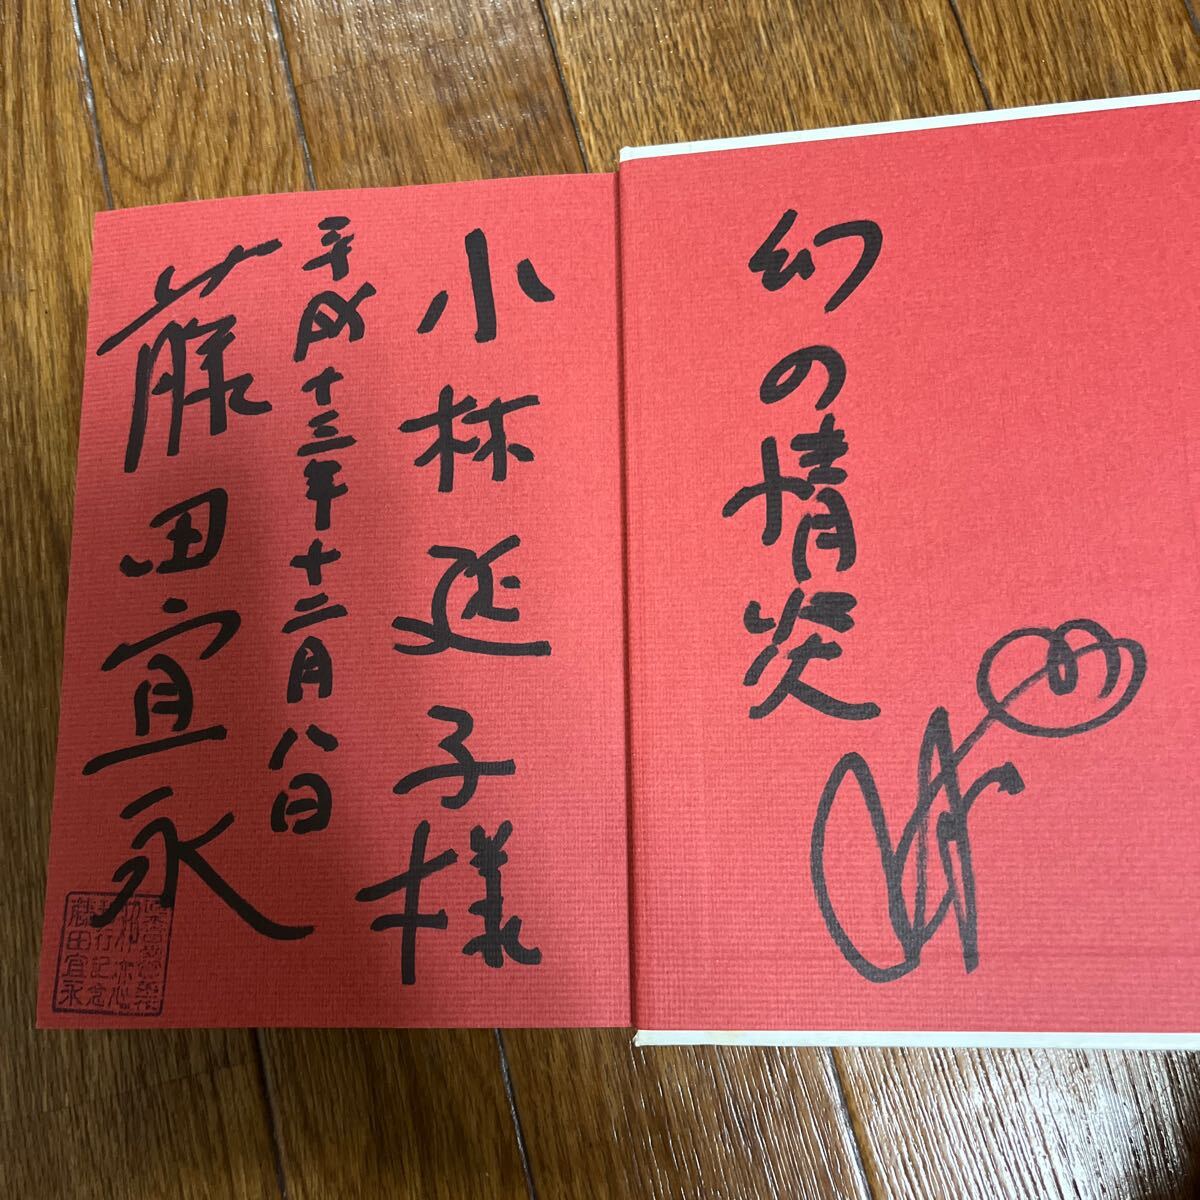 幻の情炎
小林延子様
平成十三年十二月八日
藤田宜永
刊行記念
藤田宜永